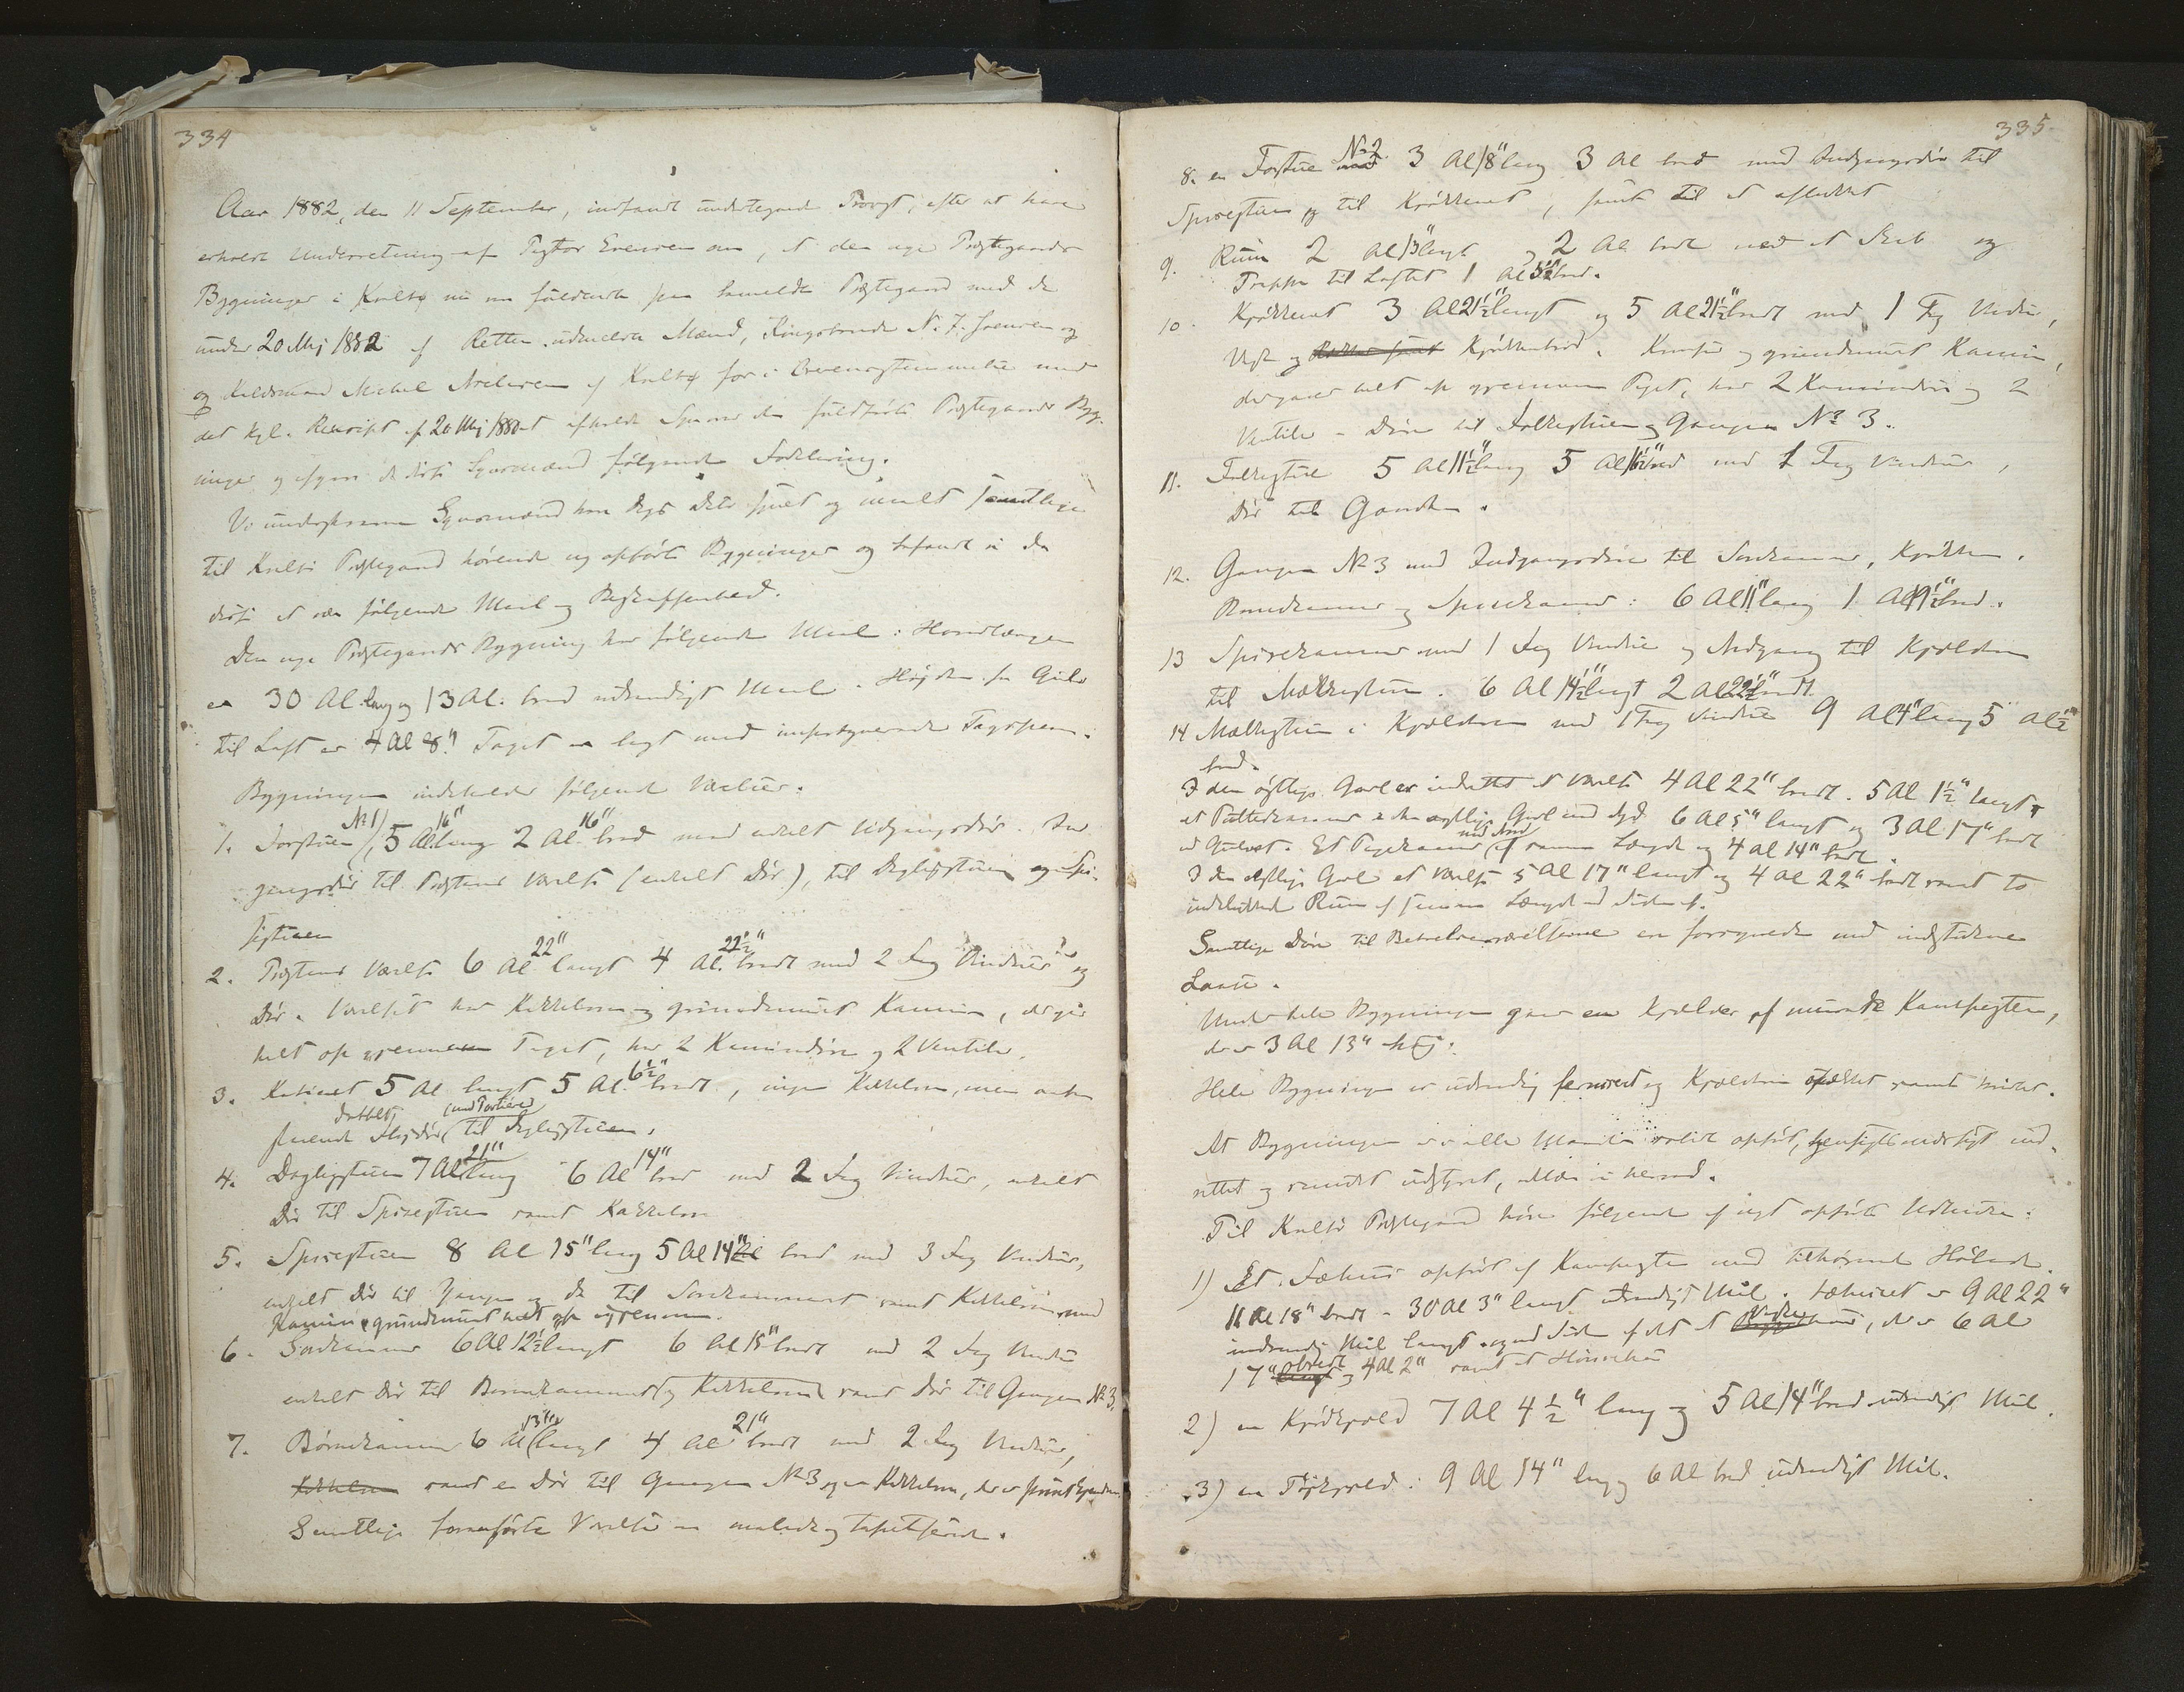 334
Aar 1882, den 11 September, indfandt undertegnede Provst, efter at have
erholdt Underretning af Pastor Evensen om, at den nye Præstegaards
Bygninger i Kvalsø nu fuldendte paa Præstegaard med de
under 20 Maj 1882 af Retten udmeldte Mænd, N. J. Joensen og
og Michel Nielsen af Kvalsø for i Overensstemmelse med
det Kgl. Rescript af 20 Maj 1880 at afholde Syn over den fuldførte Præstegaards Byg-
ninger og afgav de Synsmænd følgende Forklaring.
Vi underskrevne Synsmænd have Dags Dato synet og maalt samtlige
til Kvalsø Præstegaard hørende ny opførte Bygninger og befandt vi da
disse at være følgende Maal og Beskaffenhed.
Den nye Præstegaards Bygning har følgende Maal: Hovedlængen
er 30 Al. lang og 13 Al. bred udvendigt Maal. Højden fra Gulv
til Loft er 4 Al 8". Taget er lagt med Tagspaan.
Bygningen indeholder følgende Værelser.
1. Forstuen (No 1), 5 Al. 16" lang 2 Al. 16" bred med enkelt Udgangsdør. Ind-
gangsdør til Præstens Værelse (enkelt Dør), til Dagligstuen og Spi-
sestuen
2. Præstens Værelse 6 Al 22" langt 4 Al. 22½" bredt med 2 Fag Vinduer og
Dør. Værelset har Kakkelovn og grundmuret Kamin, der gaar
helt op gjennem Taget, har 2 Kamindøre og 2 Ventiler.
3. Kabinet 5 Al langt 5 Al. 6½" bredt, ingen Kakkelovn, men
dobbelt Fløjdør (med Portiere) til Dagligstuen.
4. Dagligstuen 7 Al 21" lang 6 Al 14" bred med 2 Fag Vinduer, enkelt
Dør til Spisestuen samt Kakkelovn
5. Spisestuen 8 Al 15" lang 5 Al 14" bred med 3 Fag Vinduer,
enkelt Dør til Gangen og do til Sovekammeret samt Kakkelovn med
Kamin grundmuret helt op igjennem.
6. Sovekammer 6 Al 12½" langt 6 Al 15" bredt med 2 Fag Vinduer
enkelt Dør til Børnekammeret og Kakkelovn samt Dør til Gangen No 3.
7. Børnekammer 6 Al 13" langt 4 Al 21" bredt med 2 Fag Vinduer,
Kakkelovn samt en Dør til Gangen No 3 og en Kakkelovn, der er
Samtlige foranførte Værelser ere malede og tapetserede.
335
8. en Forstue No 2. 3 Al 18" lang 3 Al bred med Indgangsdør til
Spisestuen og til Kjøkkenet, samt til et aflukket
9. Rum 2 Al 13" langt og 2 Al bredt med et Skab og
Trappe til Loftet 1 Al bred.
10. Kjøkkenet 3 Al 21½" langt og 5 Al 21½" bredt med 1 Fag Vindue,
Vask og Kjøkkenbord. Komfur og grundmuret Kamin,
der gaar helt op gjennem Taget, har 2 Kamindøre og 2
Ventiler – Døre til Folkestuen og Gangen No 3.
11. Folkestue 5 Al 11½" lang 5 Al 16½" bred med 1 Fag Vinduer,
Dør til Gaarden.
12. Gangen No 3 med Indgangsdøre til Sovekammer, Kjøkken,
Børnekammer og Spisekammer: 6 Al 11" lang 1 Al 19½" bred.
13 Spisekammer med 1 Fag Vindue og Nedgang til Kjælderen
til Mælkestuen. 6 Al 14½" langt 2 Al 22½" bredt.
14 Mælkestuen i Kjælderen med 1 Fag Vindue 9 Al 4" lang 5 Al ½"
bred.
I den østlige Gavl er indrettet et Værelse 4 Al 22" bredt. 5 Al 1½" langt,
et Pulterkammer i den Gavl med 6 Al 5" langt og 3 Al 17" bredt
ved Gulvet. Et Pigekammer med Ovn af samme Længde og 4 Al 14" bredt.
I den vestlige Gavl et Værelse 5 Al 17" langt og 4 Al 22" bredt samt to
indelukkede Rum af samme Længde ved Siden af.
Samtlige Døre til Beboelsesværelserne ere forsynede med indstukne
Laase.
Under hele Bygningen gaar en Kjælder af murede Kampesten,
der er 3 Al 13" høj.
Hele Bygningen er udvendig ferniseret og Kjælderen samt hvidtet.
At Bygningen er i alle Maader solidt opført, hensigtsmæssigt ind-
rettet og smukt udstyret, attestere vi herved.
Til Kvalsø Præstegaard hører følgende af nyt opførte Udhuse:
1) Et Fæhus opført af Kampesten med tilhørende Hølade.
11 Al 18" bredt – 30 Al 3" langt udvendigt Maal. Fæhuset er 9 Al 22"
indvendig Maal langt og ved Siden af det et , der er 6 Al
17" bredt og 4 Al 2" samt et Hønsehus
2) en Kjødhjæld 7 Al 4½" lang og 5 Al 14" bred udvendigt Maal.
3) en Tørhjæld: 9 Al 14" lang og 6 Al bred udvendigt Maal.